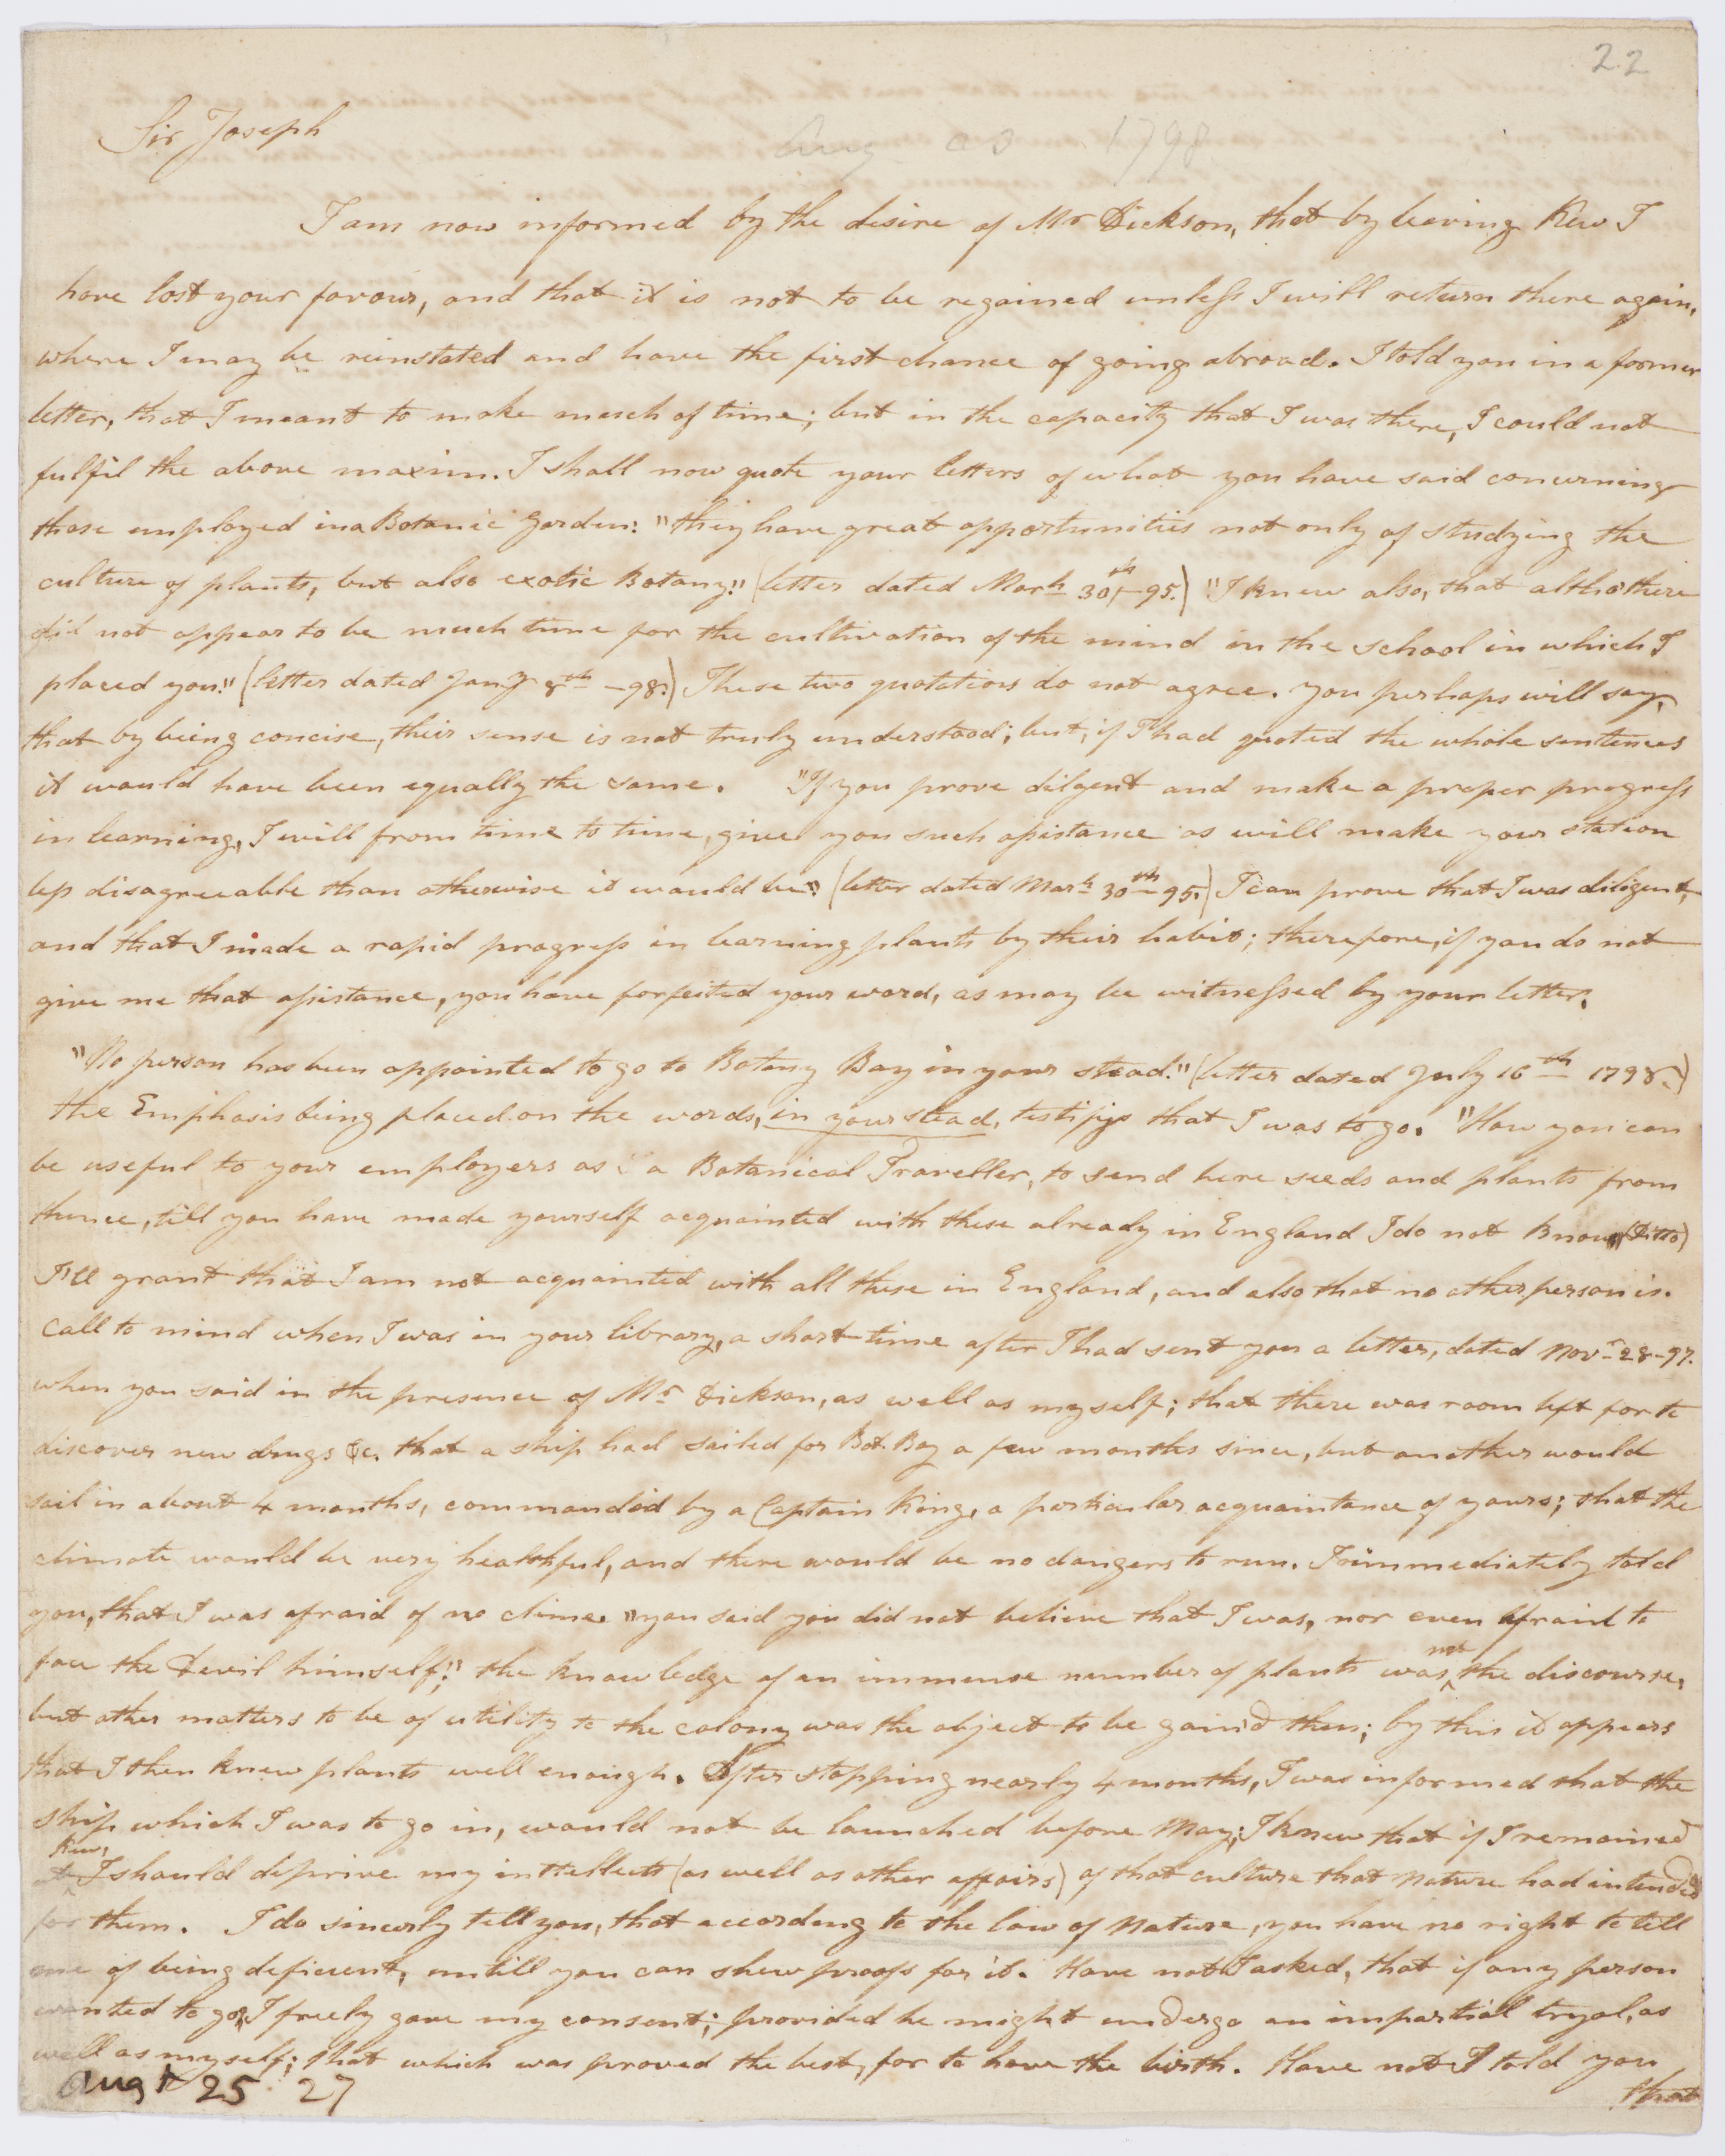 22
Sir Joseph
Aug 1798
I am now informed by the desire of Mr Dickson, that by leaving Kew I
have lost your favour, and that it is not to be regained unless I will return there again,
where I may be reinstated and have the first chance of going abroad. I told you in a former
letter, that I meant to make much of time; but in the capacity that I was there, I could not
fulfil the above maxim. I shall now quote your letters of what you have said concerning
those employed in a Botanic Garden: "they have great opportunities not only of studying the
culture of plants, but also exotic Botany." (letter dated Marh 30th -95.) "I knew also, that altho there
did not appear to be much time for the cultivation of the mind in the school in which I
placed you." (letter dated Jany 8th -98.) These two quotations do not agree. You perhaps will say,
that by being concise, their sense is not truly understood; but, if I had quoted the whole sentences
it would have been equally the same. "If you prove diligent and make a proper progress
in learning, I will from time to time, give you such assistance as will make your station
less disagreeable than otherwise it would be." (letter dated Marh 30th 95.) I can prove that I was diligent,
and that I made a rapid progress in learning plants by their habit; therefore, if you do not
give me that assistance, you have forfeited your word, as may be witnessed by your letter.
"No person has been appointed to go to Botany Bay in your stead." (letter dated July 16th 1798.)
the Emphasis being placed on the words, in your stead, testifys that I was to go. "How you can
be useful to your employers as a Botanical Traveller, to send here seeds and plants from
thence, till you have made yourself acquainted with these already in England I do not know" (Ditto)
I'll grant that I am not acquainted with all these in England, and also that no other person is.
Call to mind when I was in your library, a short time after I had sent you a letter, dated Novr 28-97.
when you said in the presence of Mr Dickson, as well as myself; that there was room left for to
discover new drugs &c. that a ship had sailed for Bot. Bay a few months since, but another would
sail in about 4 months, commanded by a Captain King, a particular acquaintance of yours; that the
climate would be very healthful, and there would be no dangers to run. I immediately told
you, that I was afraid of no clime. "you said you did not believe that I was, nor even afraid to
face the Devil himself;" the knowledge of an immense number of plants was not the discourse,
but other matters to be of utility to the colony was the object to be gain'd then; by this it appears
that I then knew plants well enough. After stopping nearly 4 months, I was informed that the
ship which I was to go in, would not be launched before May; I knew that if I remained
at Kew, I should deprive my intellects (as well as other affairs) of that culture that Nature had intended
for them. I do sincerly tell you, that according to the law of Nature, you have no right to tell
me of being deficient, untill you can shew proofs for it. Have not I asked, that if any person
wanted to go, I freely gave my consent; provided he might undergo an impartial tryal, as
well as myself; that which was proved the best, for to have the birth. Have not I told you
that
Augt 25 27